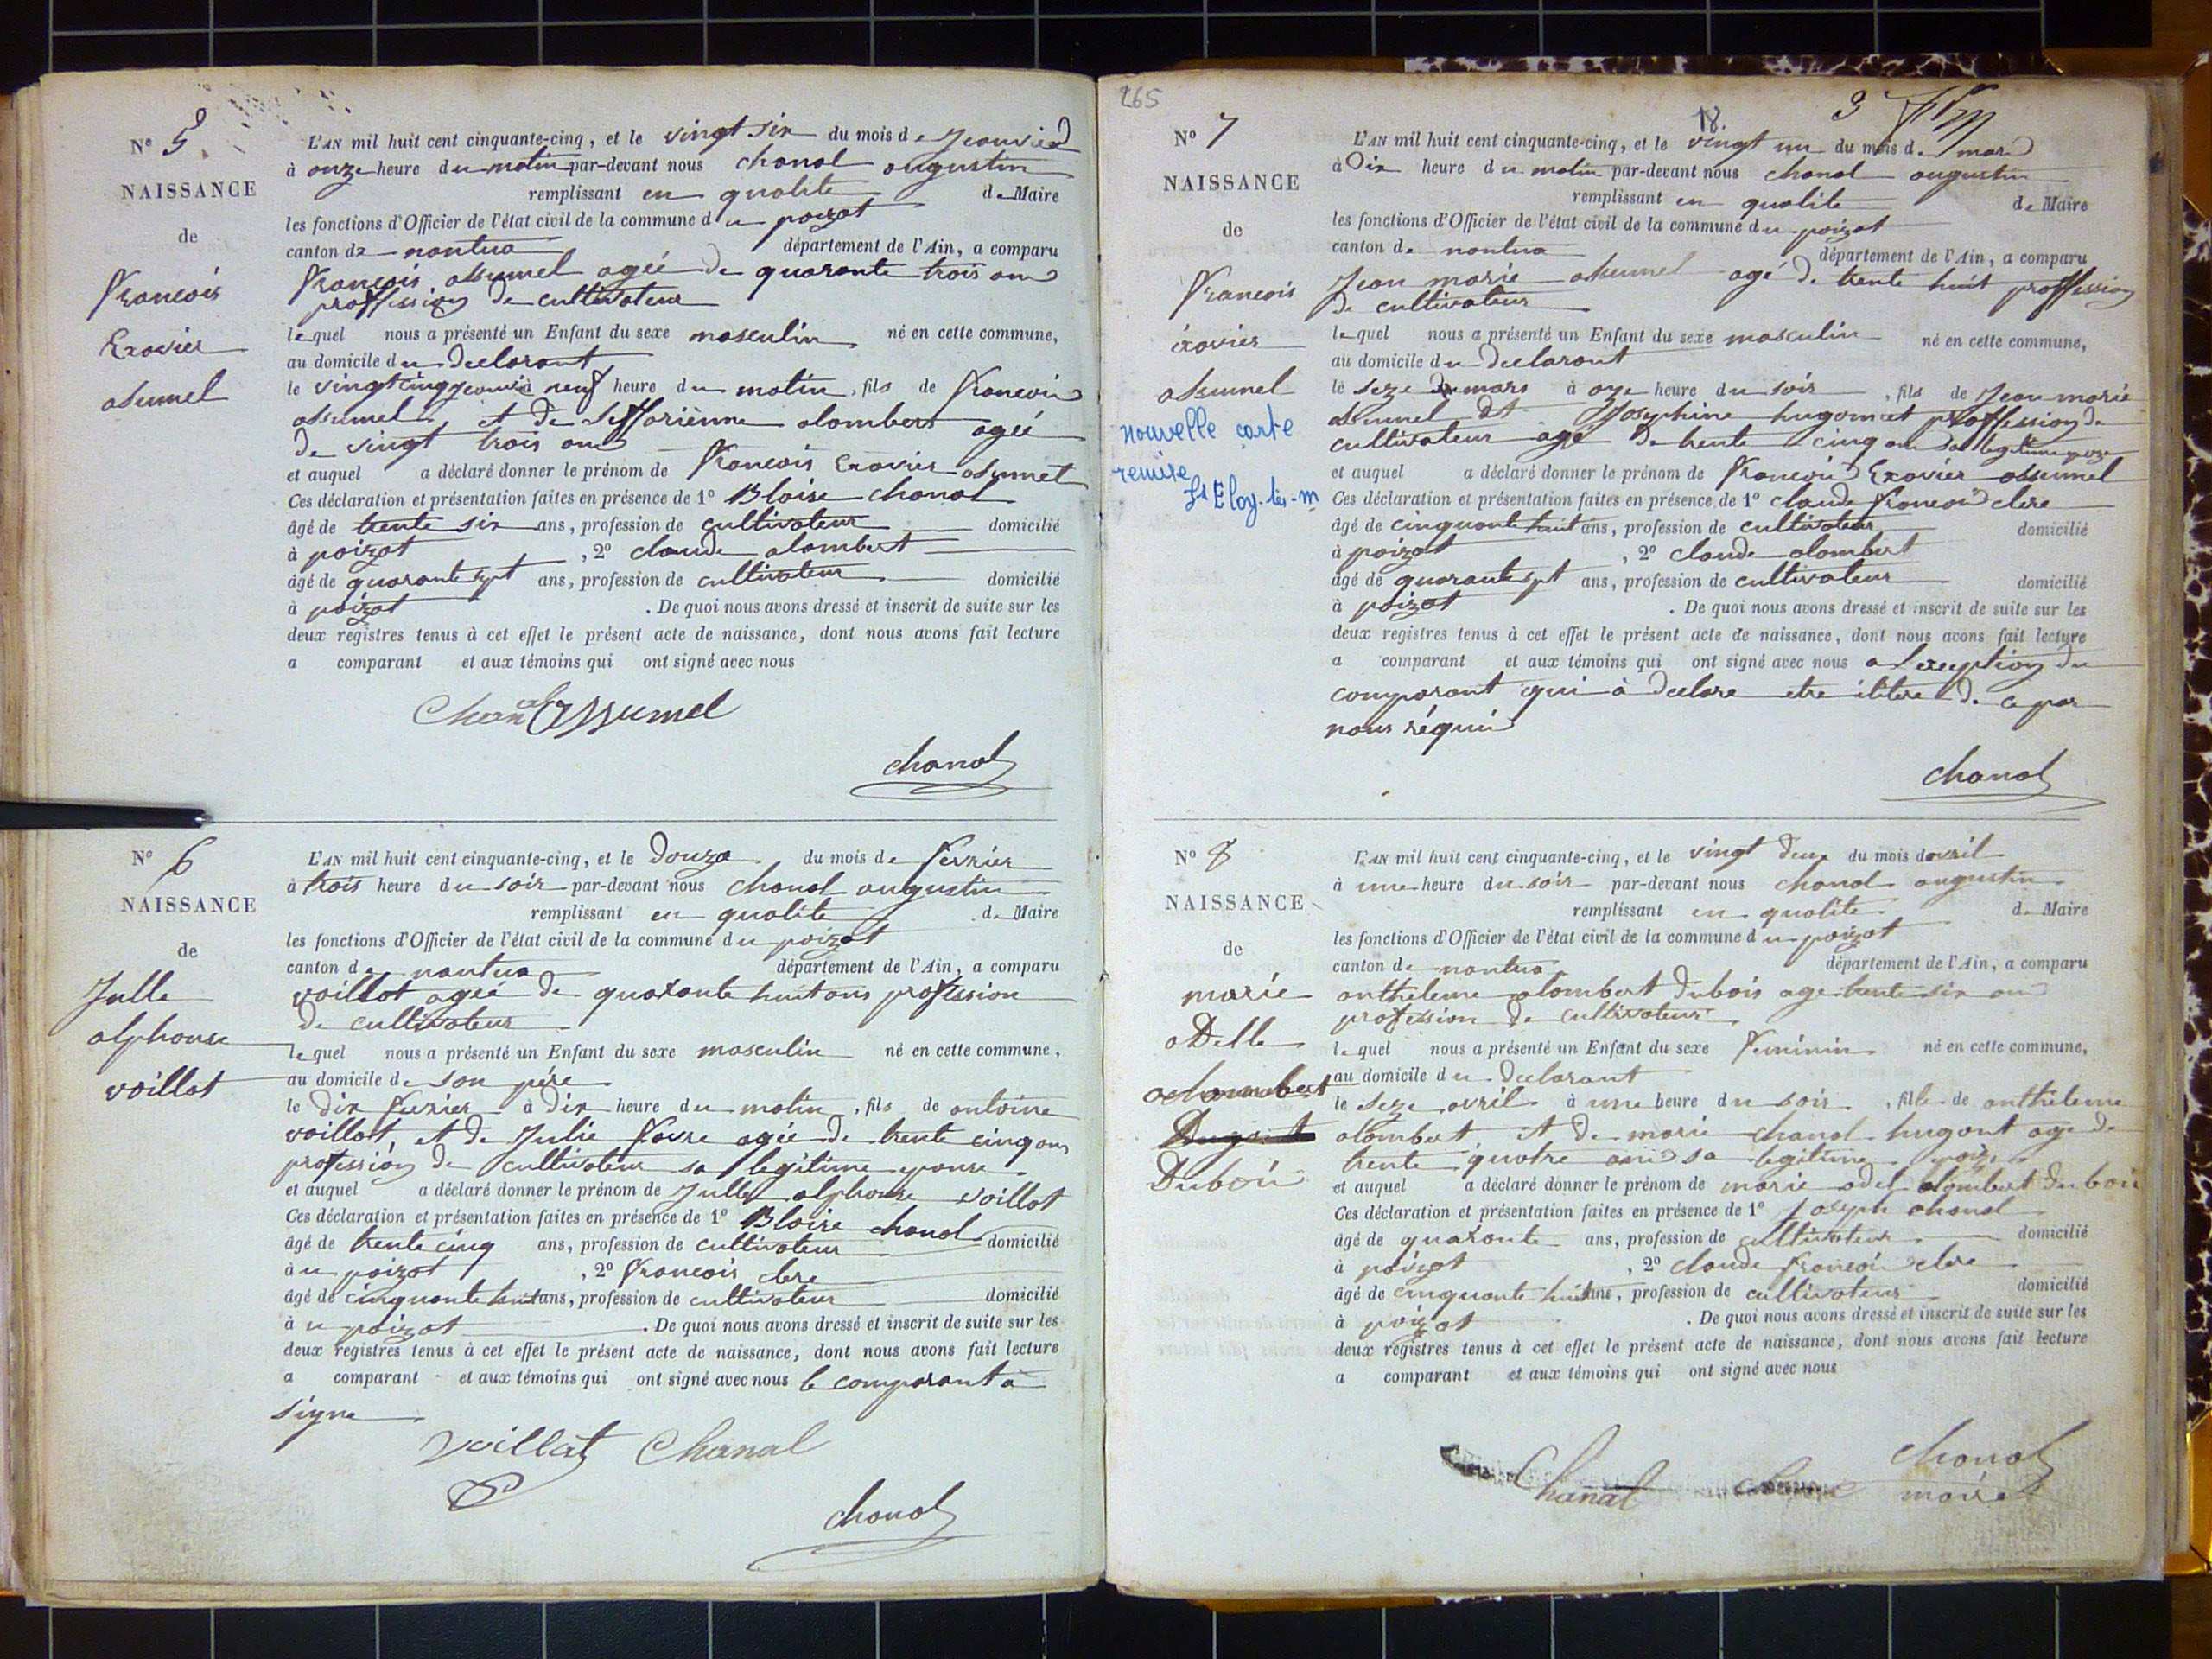 N° 5
NAISSANCE
de
francois
Exavier
assumel
L'AN mil huit cent cinquante-cinq, et le vingt six du mois de Jeanvier
à onze heure du matin par-devant nous chanal augustin
remplissant en qualité de Maire
les fonctions d'Officier de l'état civil de la commune du poizat
canton de nantua département de l'Ain, a comparu
francois assumel ageé de quarante trois ans
proffession de cultivateur
lequel nous a présenté un Enfant du sexe masculin né en cette commune,
au domicile du declarant
le vingt cinq jeanvier à neuf heure du matin, fils de francois
assumel et de Seffoриenne alombert ageé
de vingt trois ans
et auquel a déclaré donner le prénom de francois Exavier assumel
Ces déclaration et présentation faites en présence de 1° Blaise chanal
âgé de trente six ans, profession de cultivateur domicilié
à poizat, 2° claude alombert
âgé de quarante sept ans, profession de cultivateur domicilié
à poizat. De quoi nous avons dressé et inscrit de suite sur les
deux registres tenus à cet effet le présent acte de naissance, dont nous avons fait lecture
a comparant et aux témoins qui ont signé avec nous
Chanal Assumel
chanal
N° 6
NAISSANCE
de
Julle
alphonse
voillat
L'AN mil huit cent cinquante-cinq, et le Douze du mois de fevrier
à trois heure du soir par-devant nous chanal augustin
remplissant en qualité de Maire
les fonctions d'Officier de l'état civil de la commune du poizat
canton de nantua département de l'Ain, a comparu
voillat ageé de quarante huit ans profession
de cultivateur
lequel nous a présenté un Enfant du sexe masculin né en cette commune,
au domicile de son pére
le dix fevrier à dix heure du matin, fils de antoine
voillat, et de Julie favre agée de trente cinq ans
profession de cultivateur sa legitime epouse
et auquel a déclaré donner le prénom de Julle alphonse voillat
Ces déclaration et présentation faites en présence de 1° Blaise chanal
âgé de trente cinq ans, profession de cultivateur domicilié
à u poizat, 2° francois clere
âgé de cinquante huit ans, profession de cultivateur domicilié
à u poizat. De quoi nous avons dressé et inscrit de suite sur les
deux registres tenus à cet effet le présent acte de naissance, dont nous avons fait lecture
a comparant et aux témoins qui ont signé avec nous le comparant a
signe
Voillat Chanal
chanal
265
18.
3
N° 7
NAISSANCE
de
francois
éxavier
assumel
nouvelle carte
remise
St Eloy-les-m
L'AN mil huit cent cinquante-cinq, et le vingt un du mois de mars
à Dix heure du matin par-devant nous chanal augustin
remplissant en qualite de Maire
les fonctions d'Officier de l'état civil de la commune du poizat
canton de nantua département de l'Ain, a comparu
Jean marie assumel agé de trente huit proffession
de cultivateur
lequel nous a présenté un Enfant du sexe masculin né en cette commune,
au domicile du declarant
le seze de mars à oze heure du soir, fils de Jean marie
assumel et Josephine hugonnet proffession de
cultivateur agé de trente cinq ans sa legitime
et auquel a déclaré donner le prénom de francois Exavier assumel
Ces déclaration et présentation faites en présence de 1° claude francois clere
âgé de cinquante huit ans, profession de cultivateur domicilié
à poizat, 2° claude alombert
âgé de quarante sept ans, profession de cultivateur domicilié
à poizat. De quoi nous avons dressé et inscrit de suite sur les
deux registres tenus à cet effet le présent acte de naissance, dont nous avons fait lecture
a comparant et aux témoins qui ont signé avec nous a lexeption du
comparant qui à declare etre ilitere de ce par
nous réquis
chanal
N° 8
NAISSANCE
de
marie
adelle
alombert
Dubois
L'AN mil huit cent cinquante-cinq, et le vingt deux du mois davril
à une heure du soir par-devant nous chanal augustin
remplissant en qualité de Maire
les fonctions d'Officier de l'état civil de la commune du poizat
canton de nantua département de l'Ain, a comparu
antheleme alombert dubois age trente six ans
profession de cultivateur
lequel nous a présenté un Enfant du sexe feminin né en cette commune,
au domicile du declarant
le seze avril à une heure du soir, fille de antheleme
alombert et de marie chanal hugont age de
trente quatre ans sa legitime
et auquel a déclaré donner le prénom de marie adel alombert dubois
Ces déclaration et présentation faites en présence de 1° Joseph chanal
âgé de quarante ans, profession de cultivateur domicilié
à poizat, 2° claude francois clere
âgé de cinquante huit ans, profession de cultivateur domicilié
à poizat. De quoi nous avons dressé et inscrit de suite sur les
deux registres tenus à cet effet le présent acte de naissance, dont nous avons fait lecture
a comparant et aux témoins qui ont signé avec nous
Chanal chanal
maire